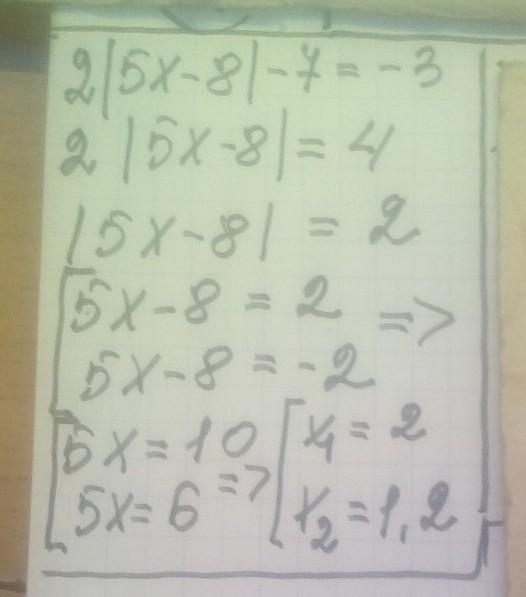 2|5x-8|-7=-3
2|5x-8|=4
|5x-8|=2
[5x-8=2
5x-8=-2 =>
[5x=10
5x=6 => [x₁=2
x₂=1,2